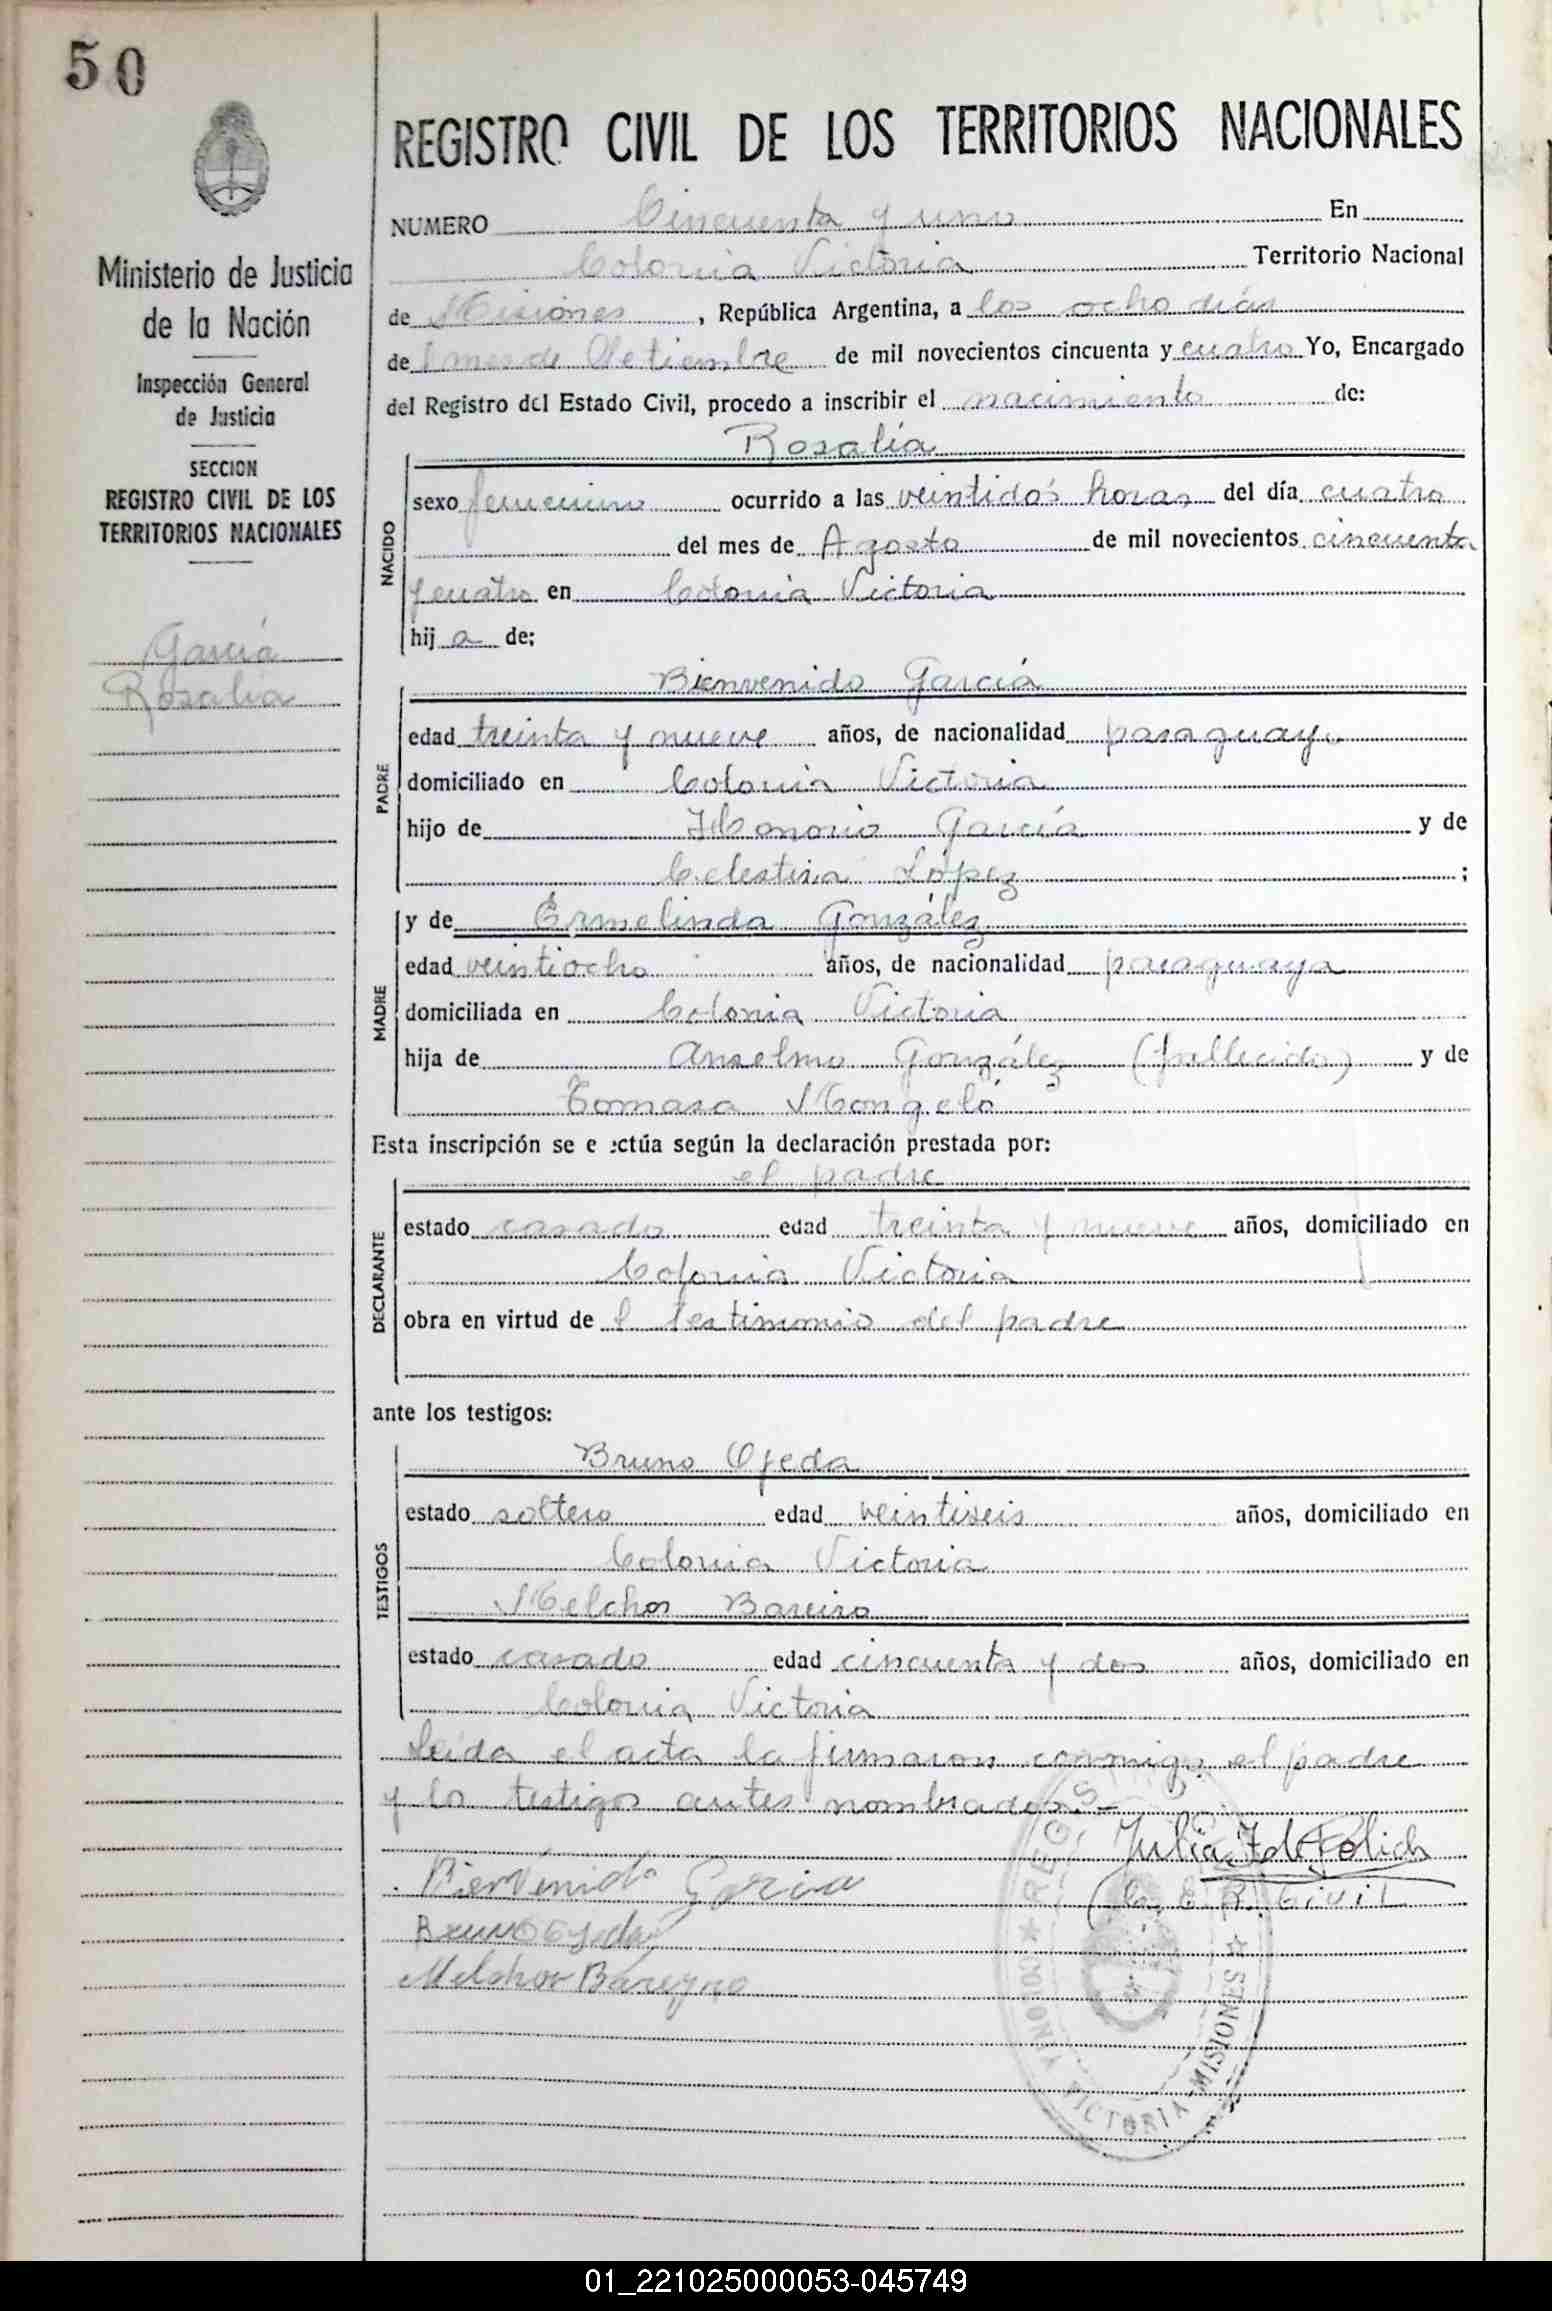 50
Ministerio de Justicia
de la Nación
Inspección General
de Justicia
SECCION
REGISTRO CIVIL DE LOS
TERRITORIOS NACIONALES
García
Rosalía
REGISTRO CIVIL DE LOS TERRITORIOS NACIONALES
NUMERO Cincuenta y uno En
Colonia Victoria Territorio Nacional
de Misiones, República Argentina, a los ocho días
del mes de Setiembre de mil novecientos cincuenta y cuatro Yo, Encargado
del Registro del Estado Civil, procedo a inscribir el nacimiento de:
Rosalía
NACIDO
sexo femenino ocurrido a las veintidós horas del día cuatro
del mes de Agosto de mil novecientos cincuenta
y cuatro en Colonia Victoria
hija de;
Bienvenido García
PADRE
edad treinta y nueve años, de nacionalidad paraguayo
domiciliado en Colonia Victoria
hijo de Honorio García y de
Celestina López ;
MADRE
y de Ermelinda González
edad veintiocho años, de nacionalidad paraguaya
domiciliada en Colonia Victoria
hija de Anselmo González (fallecido) y de
Tomasa Mongeló
Esta inscripción se e ectúa según la declaración prestada por:
el padre
DECLARANTE
estado casado edad treinta y nueve años, domiciliado en
Colonia Victoria
obra en virtud del testimonio del padre
ante los testigos:
Bruno Ojeda
TESTIGOS
estado soltero edad veintiseis años, domiciliado en
Colonia Victoria
Melchor Bareiro
estado casado edad cincuenta y dos años, domiciliado en
Colonia Victoria
Leída el acta la firmaron conmigo el padre
y los testigos antes nombrados.-
Julia Z de Polich
E. R. Civil
Bienvenido Garcia
Bruno Ojeda
Melchor Bareyro
COLONIA VICTORIA - MISIONES
01_221025000053-045749